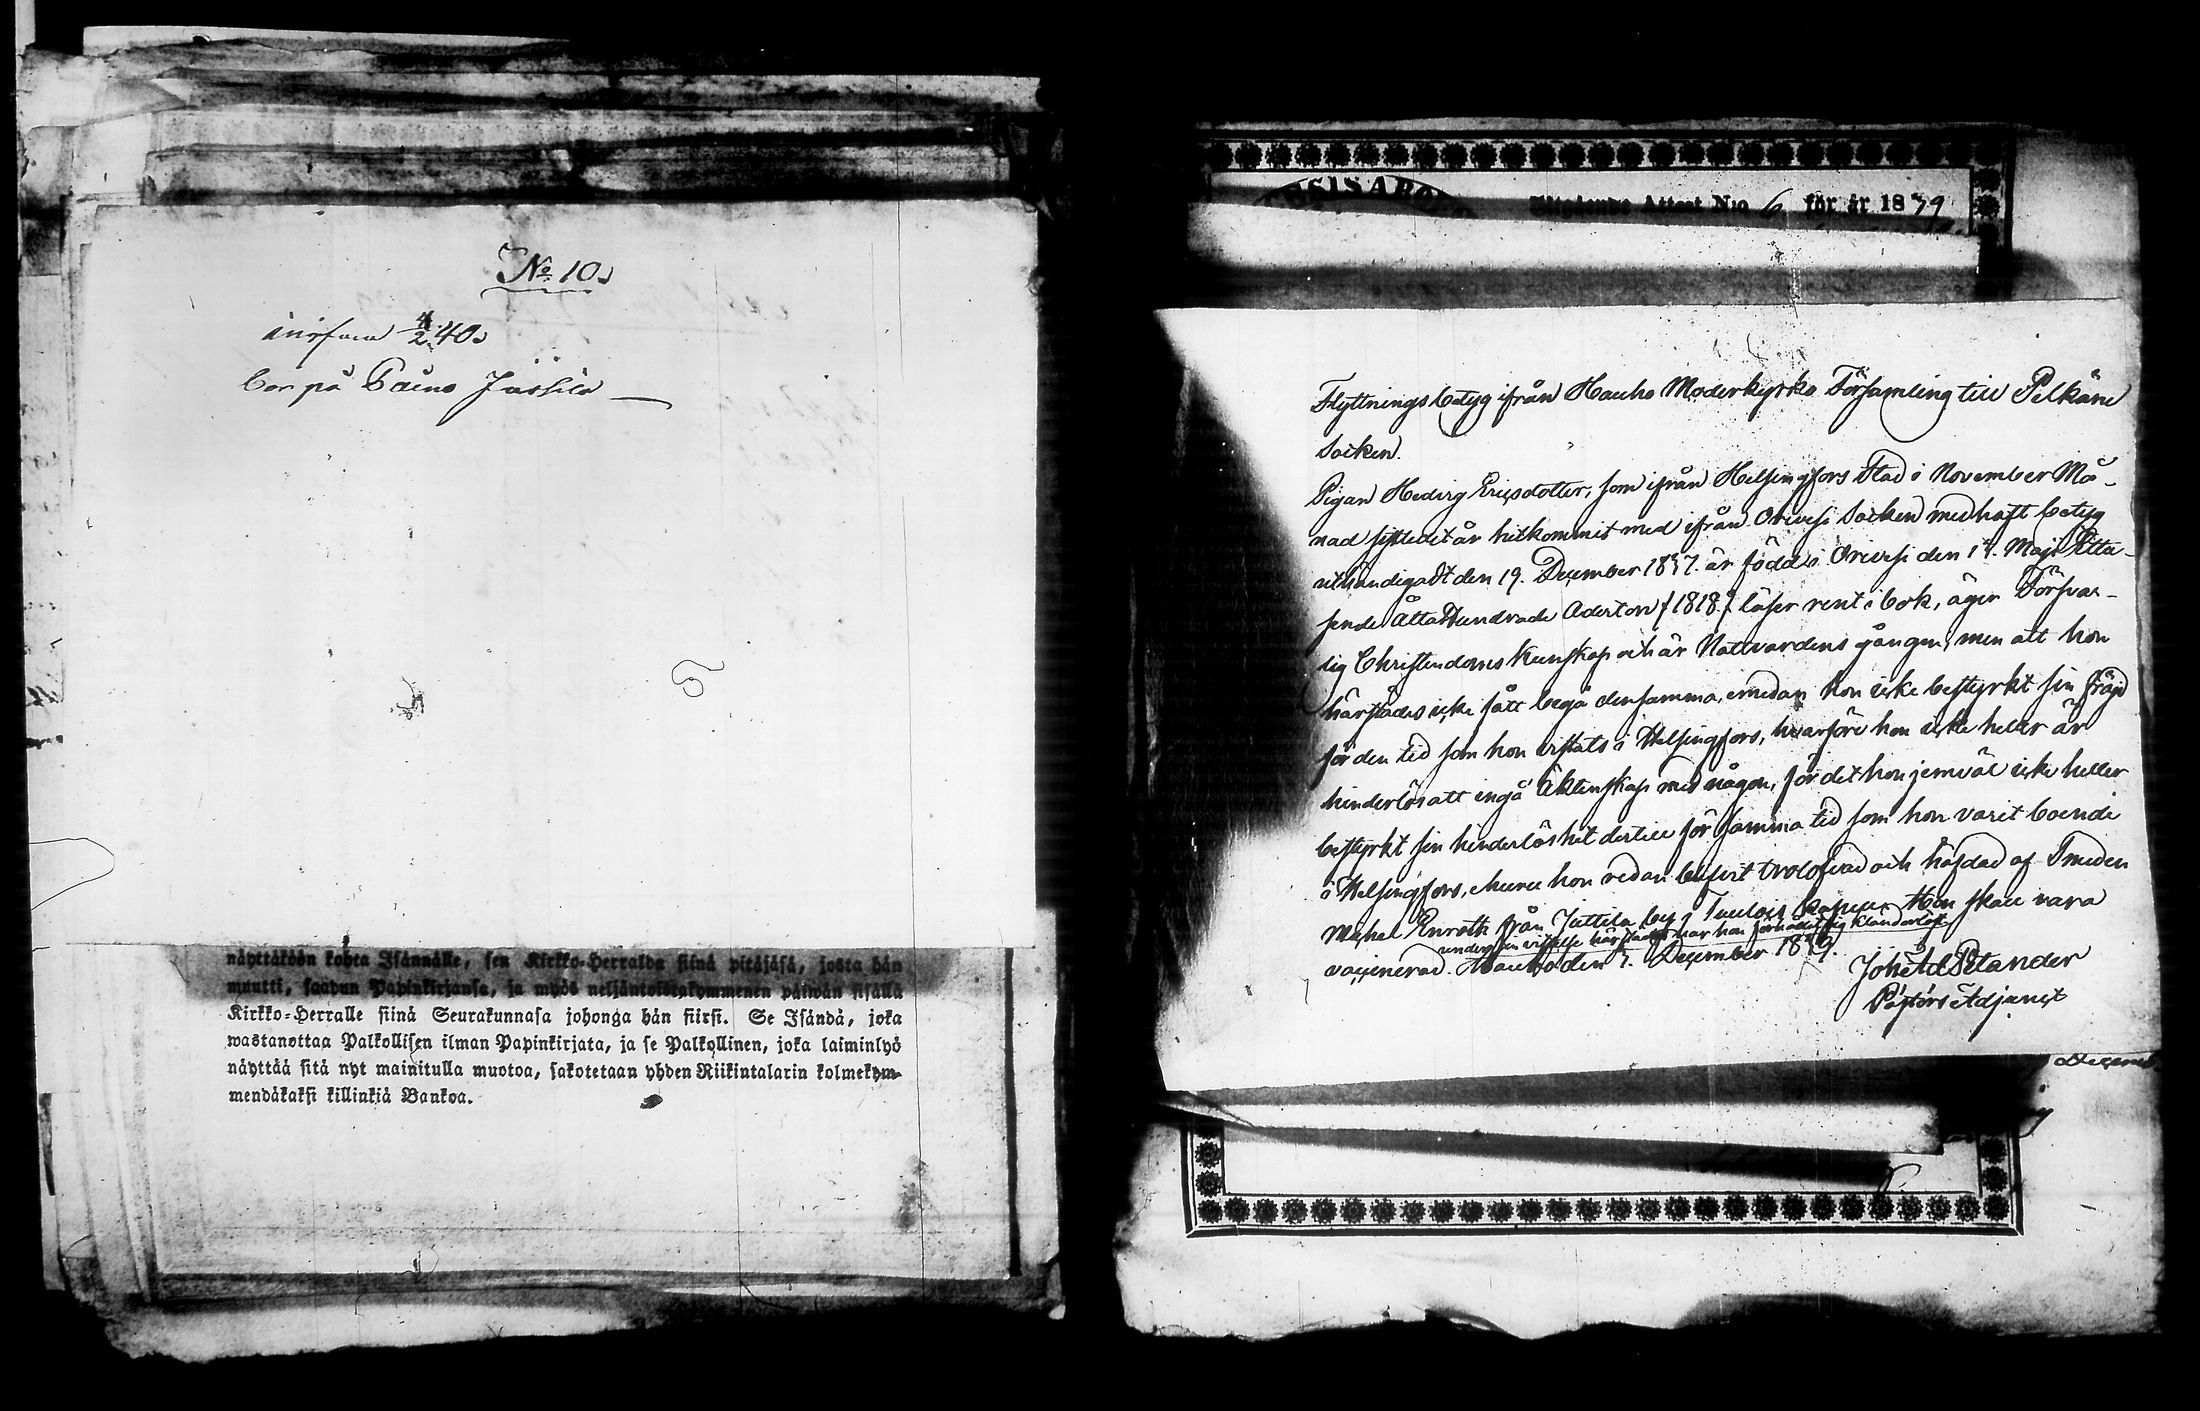 No 10.
införd 4/2 40.
bor på Paino Jussila
näyttäköön kohta Isännälle, sen Kirkko-Herralda siinä pitäjäsä, josta hän
muutti, saadun Papinkirjansa, ja myös neljäntoistakymmenen päiwän sisällä
Kirkko-Herralle siinä Seurakunnasa johonga hän siirsi. Se Isändä, joka
wastanottaa Palkollisen ilman Papinkirjata, ja se Palkollinen, joka laiminlyö
näyttää sitä nyt mainitulla muotoa, sakotetaan yhden Riikintalarin kolmekym-
mendäkaksi killinkiä Bankoa.
Attest N:o 6 för år 1839
Flyttningsbetyg ifrån Hauho Moderkyrko Församling till Pelkäne
Socken.
Pigan Hedvig Ericsdotter, som ifrån Helsingfors Stad i November Må-
nad sistledet år hitkommit med ifrån Orivesi Socken medhaft betyg
uthändigadt den 19. December 1837. är född i Orivesi den 14. Maji Etta-
sende Åttahundrade Aderton /:1818:/ läser rent i bok, äger Försvar-
lig Christendoms kunskap och är Nattvardens gången, men att hon
härstädes icke fått begå densamma, emedan hon icke bestyrkt sin frägd
för den tid som hon vistats i Helsingfors, hvarföre hon icke heller är
hinderlös att ingå Äktenskap med någon, för det hon jemväl icke heller
bestyrkt sin hinderlöshet dertill för samma tid som hon varit boende
i Helsingfors, ehuru hon redan blifvit trolofvad och häfdad af Smeden
Michel Enroth från Juttila by i Tulois Kapell. Hon skall vara
under sin vistelse härstädes har hon förhållit sig klanderlöst
vaccinerad. Hauho den 7. December 1839.
Joh: Ad: Petander
Pastors Adjunct
Decemb